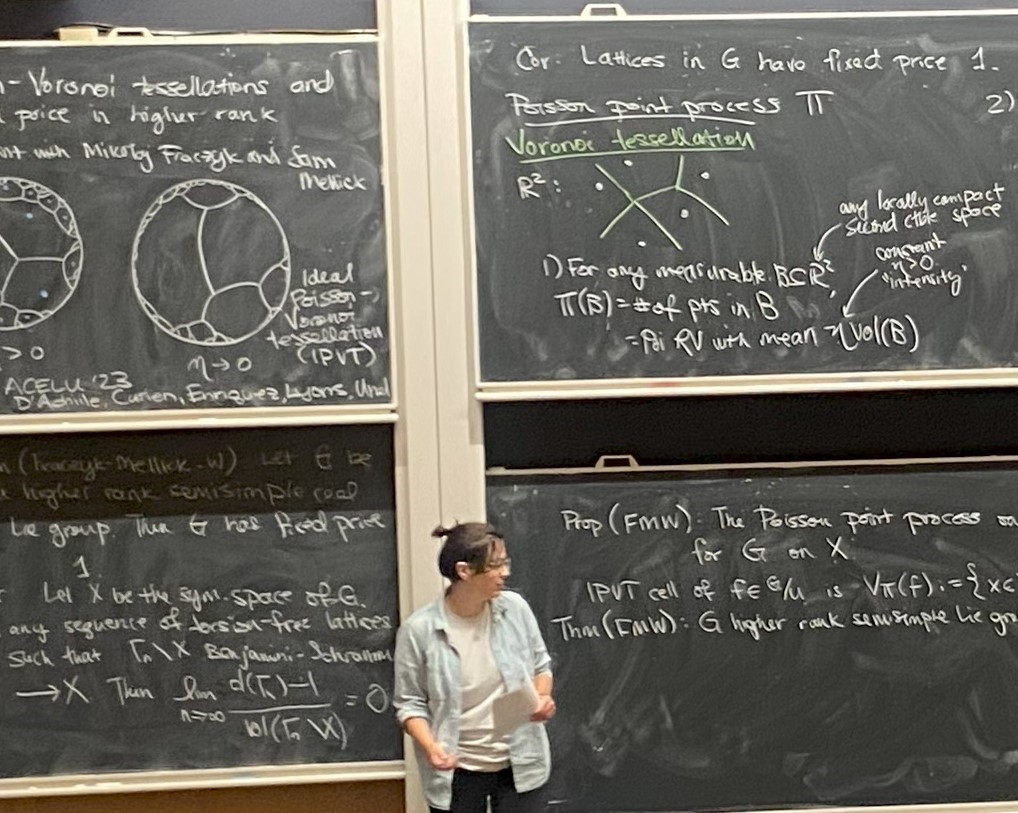 - Voronoi tessellations and
price in higher rank
with Mikolaj Fraczyk and Sam
Mellick
Ideal
Poisson-
Voronoi
tessellation
(IPVT)
> 0
η→0
ACELU '23
D'Achille, Curien, Enriquez, Lyons, Ünel
(Fraczyk-Mellick-W) Let G be
higher rank semisimple real
Lie group. Then G has fixed price
1.
Let X be the sym. space of G.
any sequence of torsion-free lattices
such that Γn\X Benjamini-Schramm
→X Then lim n→∞ d(Γn)-1 / vol(Γn\X) = 0
Cor: Lattices in G have fixed price 1.
Poisson point process Π
2)
Voronoi tessellation
R²:
any locally compact
second ctble space
constant
η>0
"intensity"
1) For any measurable B⊆R²,
Π(B) = # of pts in B
= Poi RV with mean η vol(B)
Prop (FMW): The Poisson point process on
for G on X.
IPVT cell of f∈G/U is V_Π(f) := {x∈
Thm (FMW): G higher rank semisimple Lie gro